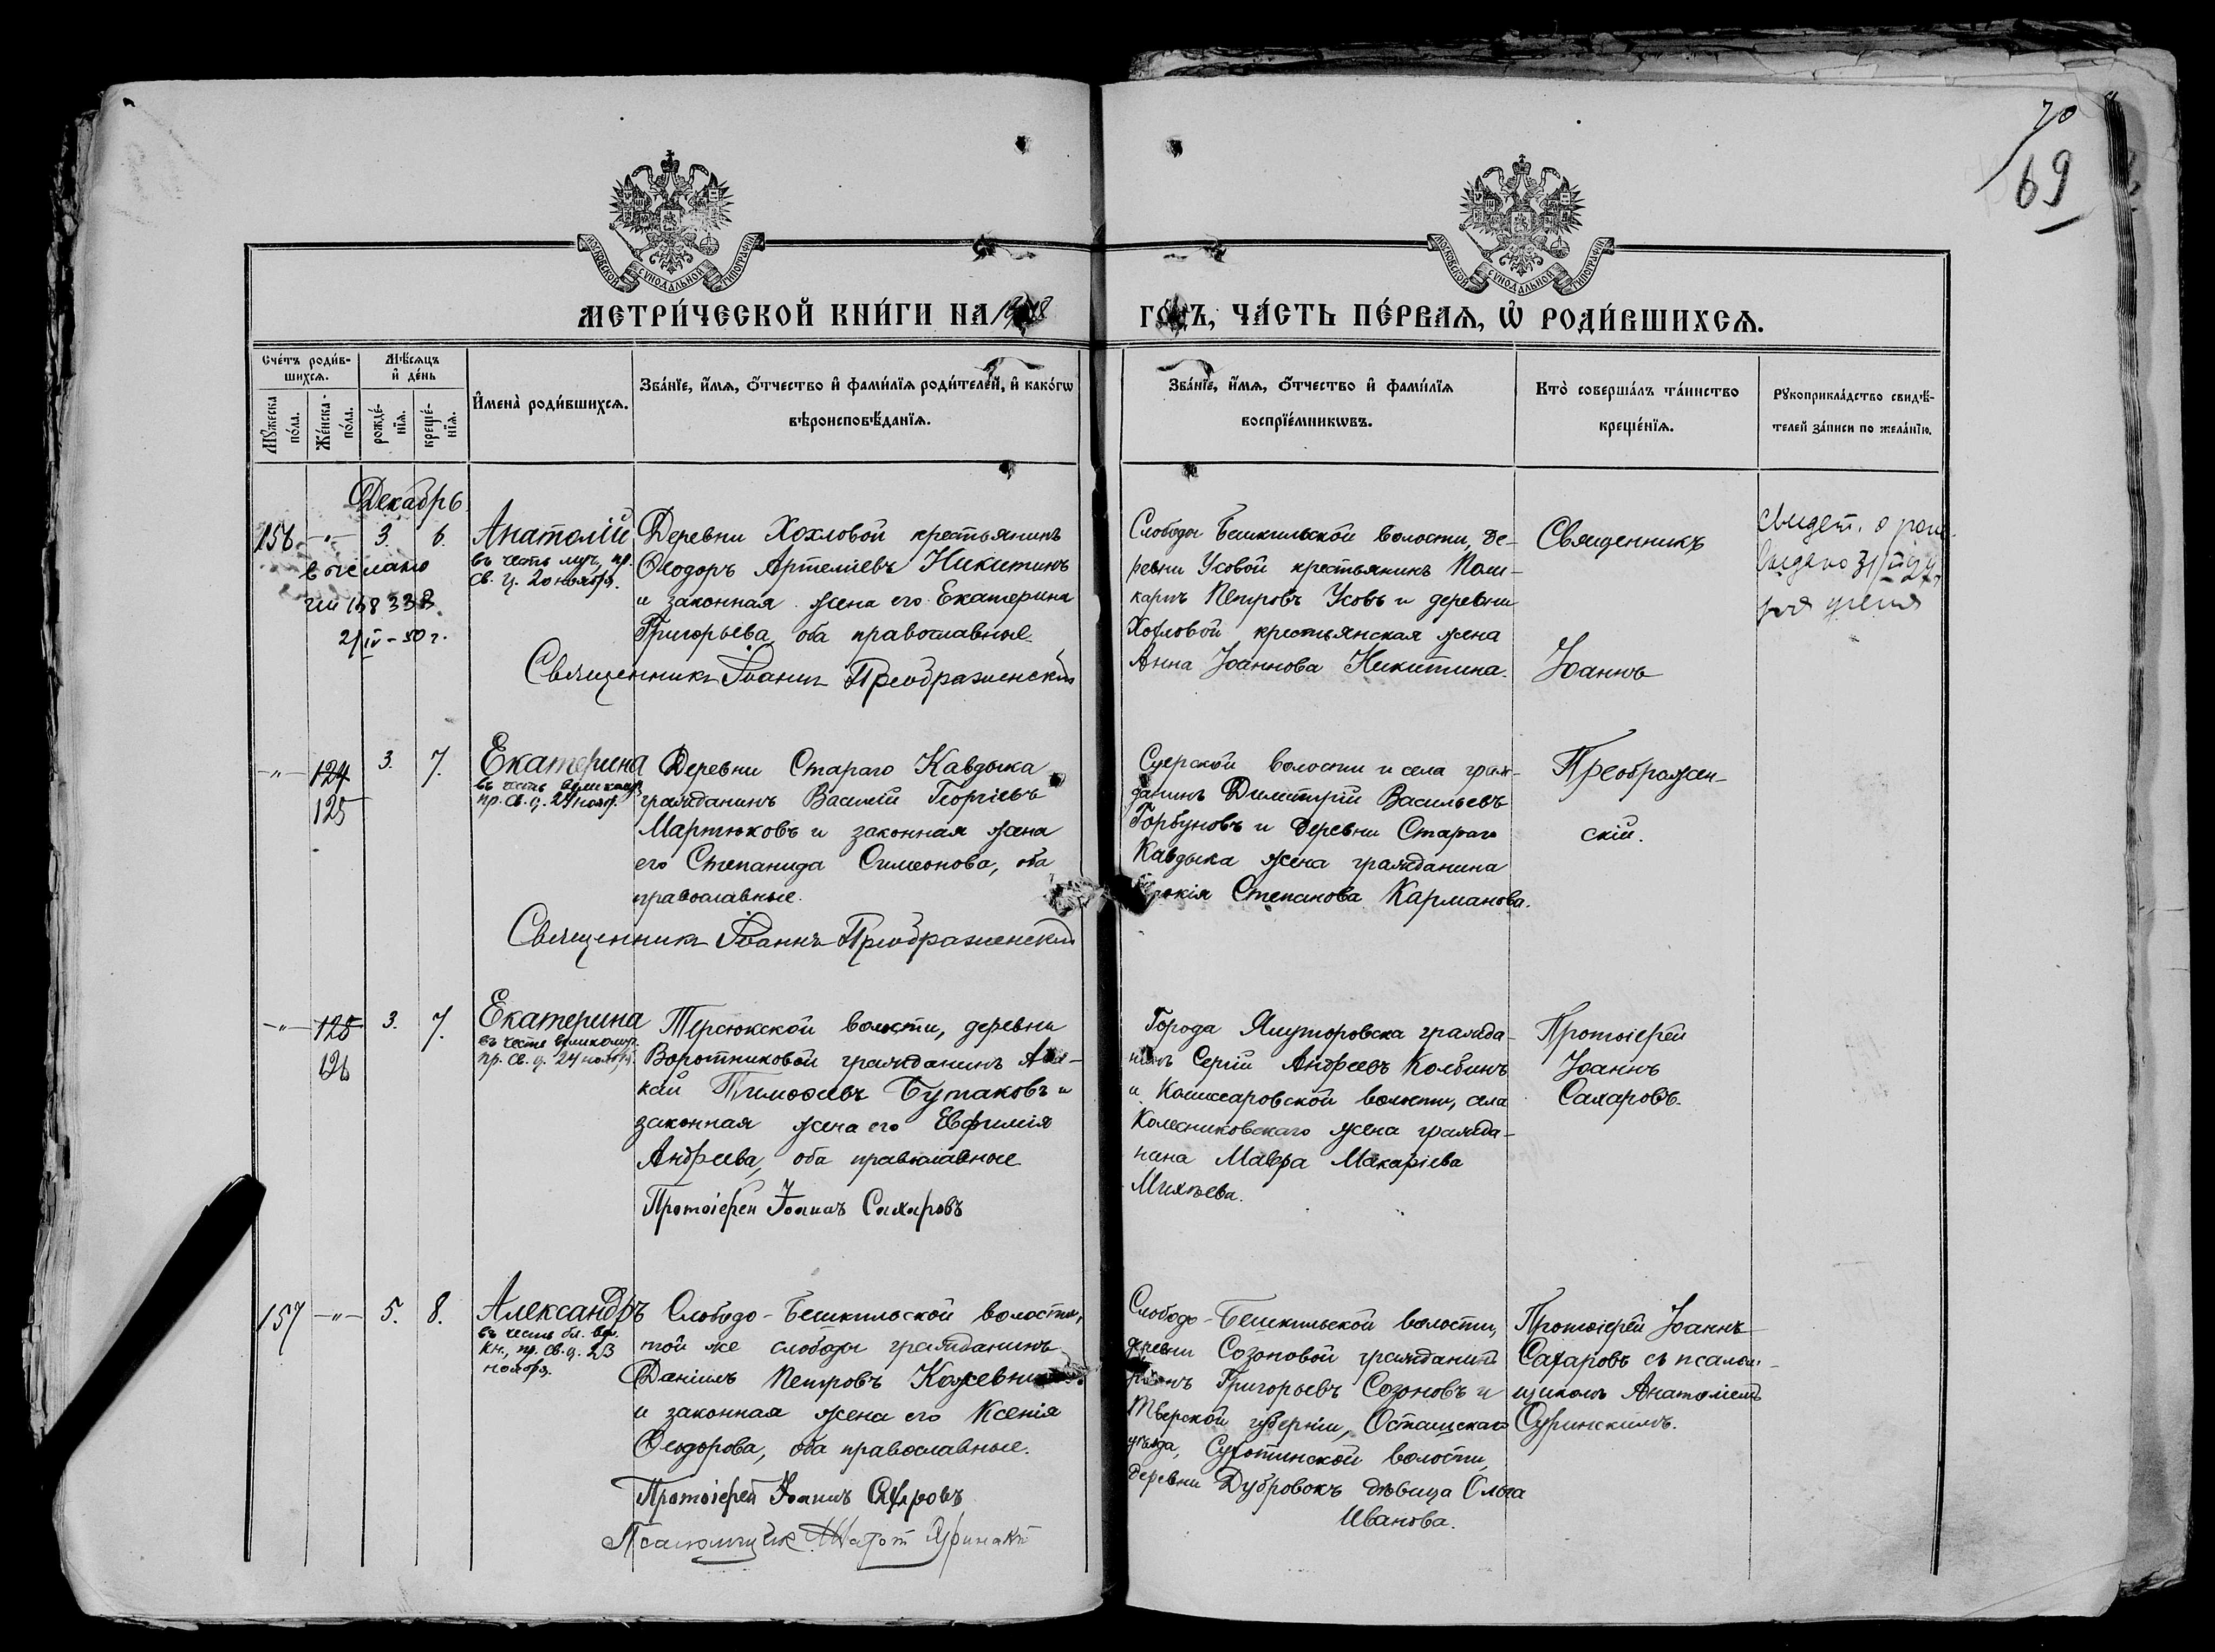 70
69
МОСКОВСКОЙ СУНОДАЛЬНОЙ ТИПОГРАФІИ
МОСКОВСКОЙ СУНОДАЛЬНОЙ ТИПОГРАФІИ
МЕТРИ́ЧЕСКОЙ КНИ́ГИ НА
ГО́ДЪ, ЧА́СТЬ ПЕ́РВАЯ, Ѽ РОДИ́ВШИХСЯ.
Сче́тъ роди́в-
шихся.
Мѣ́сяцъ
и҆ де́нь
Мꙋ́жеска
по́ла.
Же́нска-
по́ла.
рожде́-
нїя.
креще́-
нїя.
И҆мена̀ роди́вшихся.
Зва́нїе, и҆́мя, ѻ҆́тчество и҆ фами́лїя роди́телей, и҆ како́гѡ
вѣроисповѣ́данїя.
Зва́нїе, и҆́мя, ѻ҆́тчество и҆ фами́лїя
воспрїе́мникѡвъ.
Кто̀ соверша́лъ та́инство
креще́нїя.
Рꙋкоприкла́дство свидѣ́-
телей за́писи по жела́нїю.
Декабрь
156 -"- 3. 6.
338
21/IV-50 г.
Анатолій
въ честь муч., пр.
св. ц. 20 ноября.
Деревни Хохловой крестьянинъ
Ѳеодоръ Артеміевъ Никитинъ
и законная жена его Екатерина
Григорьева, оба православные.
Священникъ Іоаннъ Преображенскій
Слободы Бешкильской волости, де-
ревни Усовой крестьянинъ Поли-
карпъ Петровъ Усовъ и деревни
Хохловой крестьянская жена
Анна Іоаннова Никитина.
Священникъ
Іоаннъ
Преображен-
скій.
свидет. о рож.
выдано
-"- 124 3. 7.
125
Екатерина
въ честь великомуч.
пр. св. ц. 24 нояб.
Деревни Стараго Кавдыка
гражданинъ Василій Георгіевъ
Мартюковъ и законная жена
его Степанида Симеонова, оба
православные.
Священникъ Іоаннъ Преображенскій
Суерской волости и села граж-
данинъ Димитрій Васильевъ
Горбуновъ и деревни Стараго
Кавдыка жена гражданина
Степанова Карманова.
-"- 125 3. 7.
126
Екатерина
въ честь великомуч.
пр. св. ц. 24 ноября.
Терсюкской волости, деревни
Воротниковой гражданинъ
Тимоѳеевъ Бутаковъ и
законная жена его Евфимія
Андреева, оба православные
Протоіерей Іоаннъ Сахаровъ
Города Ялуторовска гражда-
нинъ Сергій Андреевъ Колбинъ
и Комиссаровской волости, села
Колесниковскаго жена гражда-
нина Мавра Макаріева
Михѣева.
Протоіерей
Іоаннъ
Сахаровъ.
157 -"- 5. 8.
Александръ
въ честь бл. вел.
кн., пр. св. ц. 23
ноября.
Слободо-Бешкильской волости,
той же слободы гражданинъ
Даніилъ Петровъ
и законная жена его Ксенія
Ѳеодорова, оба православные.
Протоіерей Іоаннъ Сахаровъ
Псаломщик
Слободо-Бешкильской волости,
деревни Созоновой гражданинъ
Григорьевъ Созоновъ и
Тверской губерніи, Осташскаго
уѣзда, Сухотинской волости,
деревни Дубровокъ дѣвица Ольга
Иванова.
Протоіерей Іоаннъ
Сахаровъ съ псалом-
щикомъ Анатоліемъ